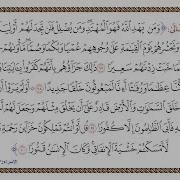 وَمَن يَهْدِ ٱللَّهُ فَهُوَ ٱلْمُهْتَدِ وَمَن يُضْلِلْ فَلَن تَجِدَ لَهُمْ
وَنَحْشُرُهُمْ يَوْمَ ٱلْقِيَٰمَةِ عَلَىٰ وُجُوهِهِمْ عُمْيًا وَبُكْمًا وَصُمًّا مَّأْوَىٰهُمْ
خَبَتْ زِدْنَٰهُمْ سَعِيرًا ٩٧ ذَٰلِكَ جَزَآؤُهُم بِأَنَّهُمْ كَفَرُوا۟ بِـَٔايَٰتِنَا
عِظَٰمًا وَرُفَٰتًا أَءِنَّا لَمَبْعُوثُونَ خَلْقًا جَدِيدًا ٩٨ أَوَلَمْ يَرَوْا۟
خَلَقَ ٱلسَّمَٰوَٰتِ وَٱلْأَرْضَ قَادِرٌ عَلَىٰٓ أَن يَخْلُقَ مِثْلَهُمْ وَجَعَلَ
فِيهِ فَأَبَى ٱلظَّٰلِمُونَ إِلَّا كُفُورًا ٩٩ قُل لَّوْ أَنتُمْ تَمْلِكُونَ خَزَآئِنَ رَحْمَةِ
لَّأَمْسَكْتُمْ خَشْيَةَ ٱلْإِنفَاقِ وَكَانَ ٱلْإِنسَٰنُ قَتُورًا ١٠٠